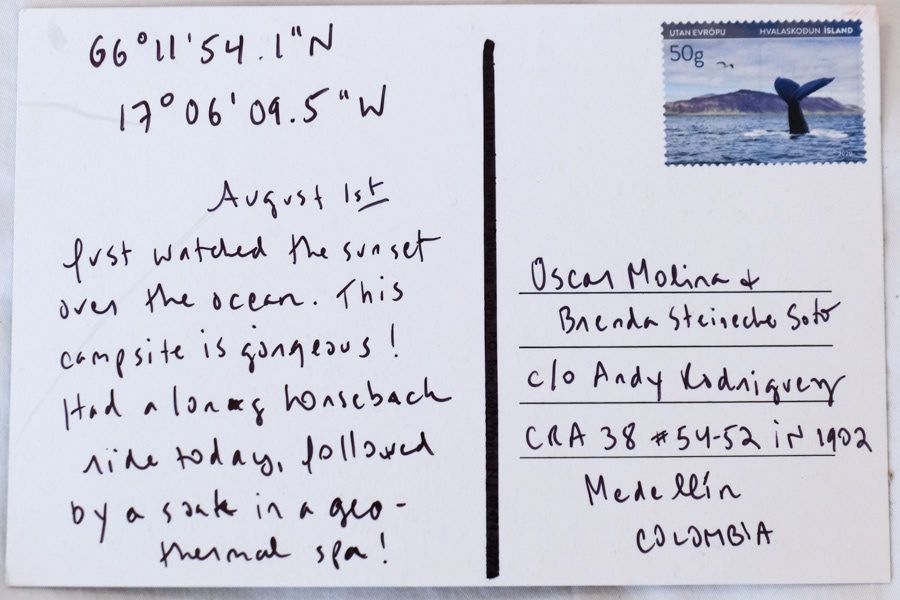 66°11'54.1"N
17°06'09.5"W
August 1st
Just watched the sunset
over the ocean. This
campsite is gorgeous!
Had a long horseback
ride today, followed
by a soak in a geo-
thermal spa!
UTAN EVRÓPU HVALASKOÐUN ÍSLAND
50g
Oscar Molina &
Brenda Steinecke Soto
c/o Andy Rodriguez
CRA 38 #54-52 iN 1902
Medellín
COLOMBIA